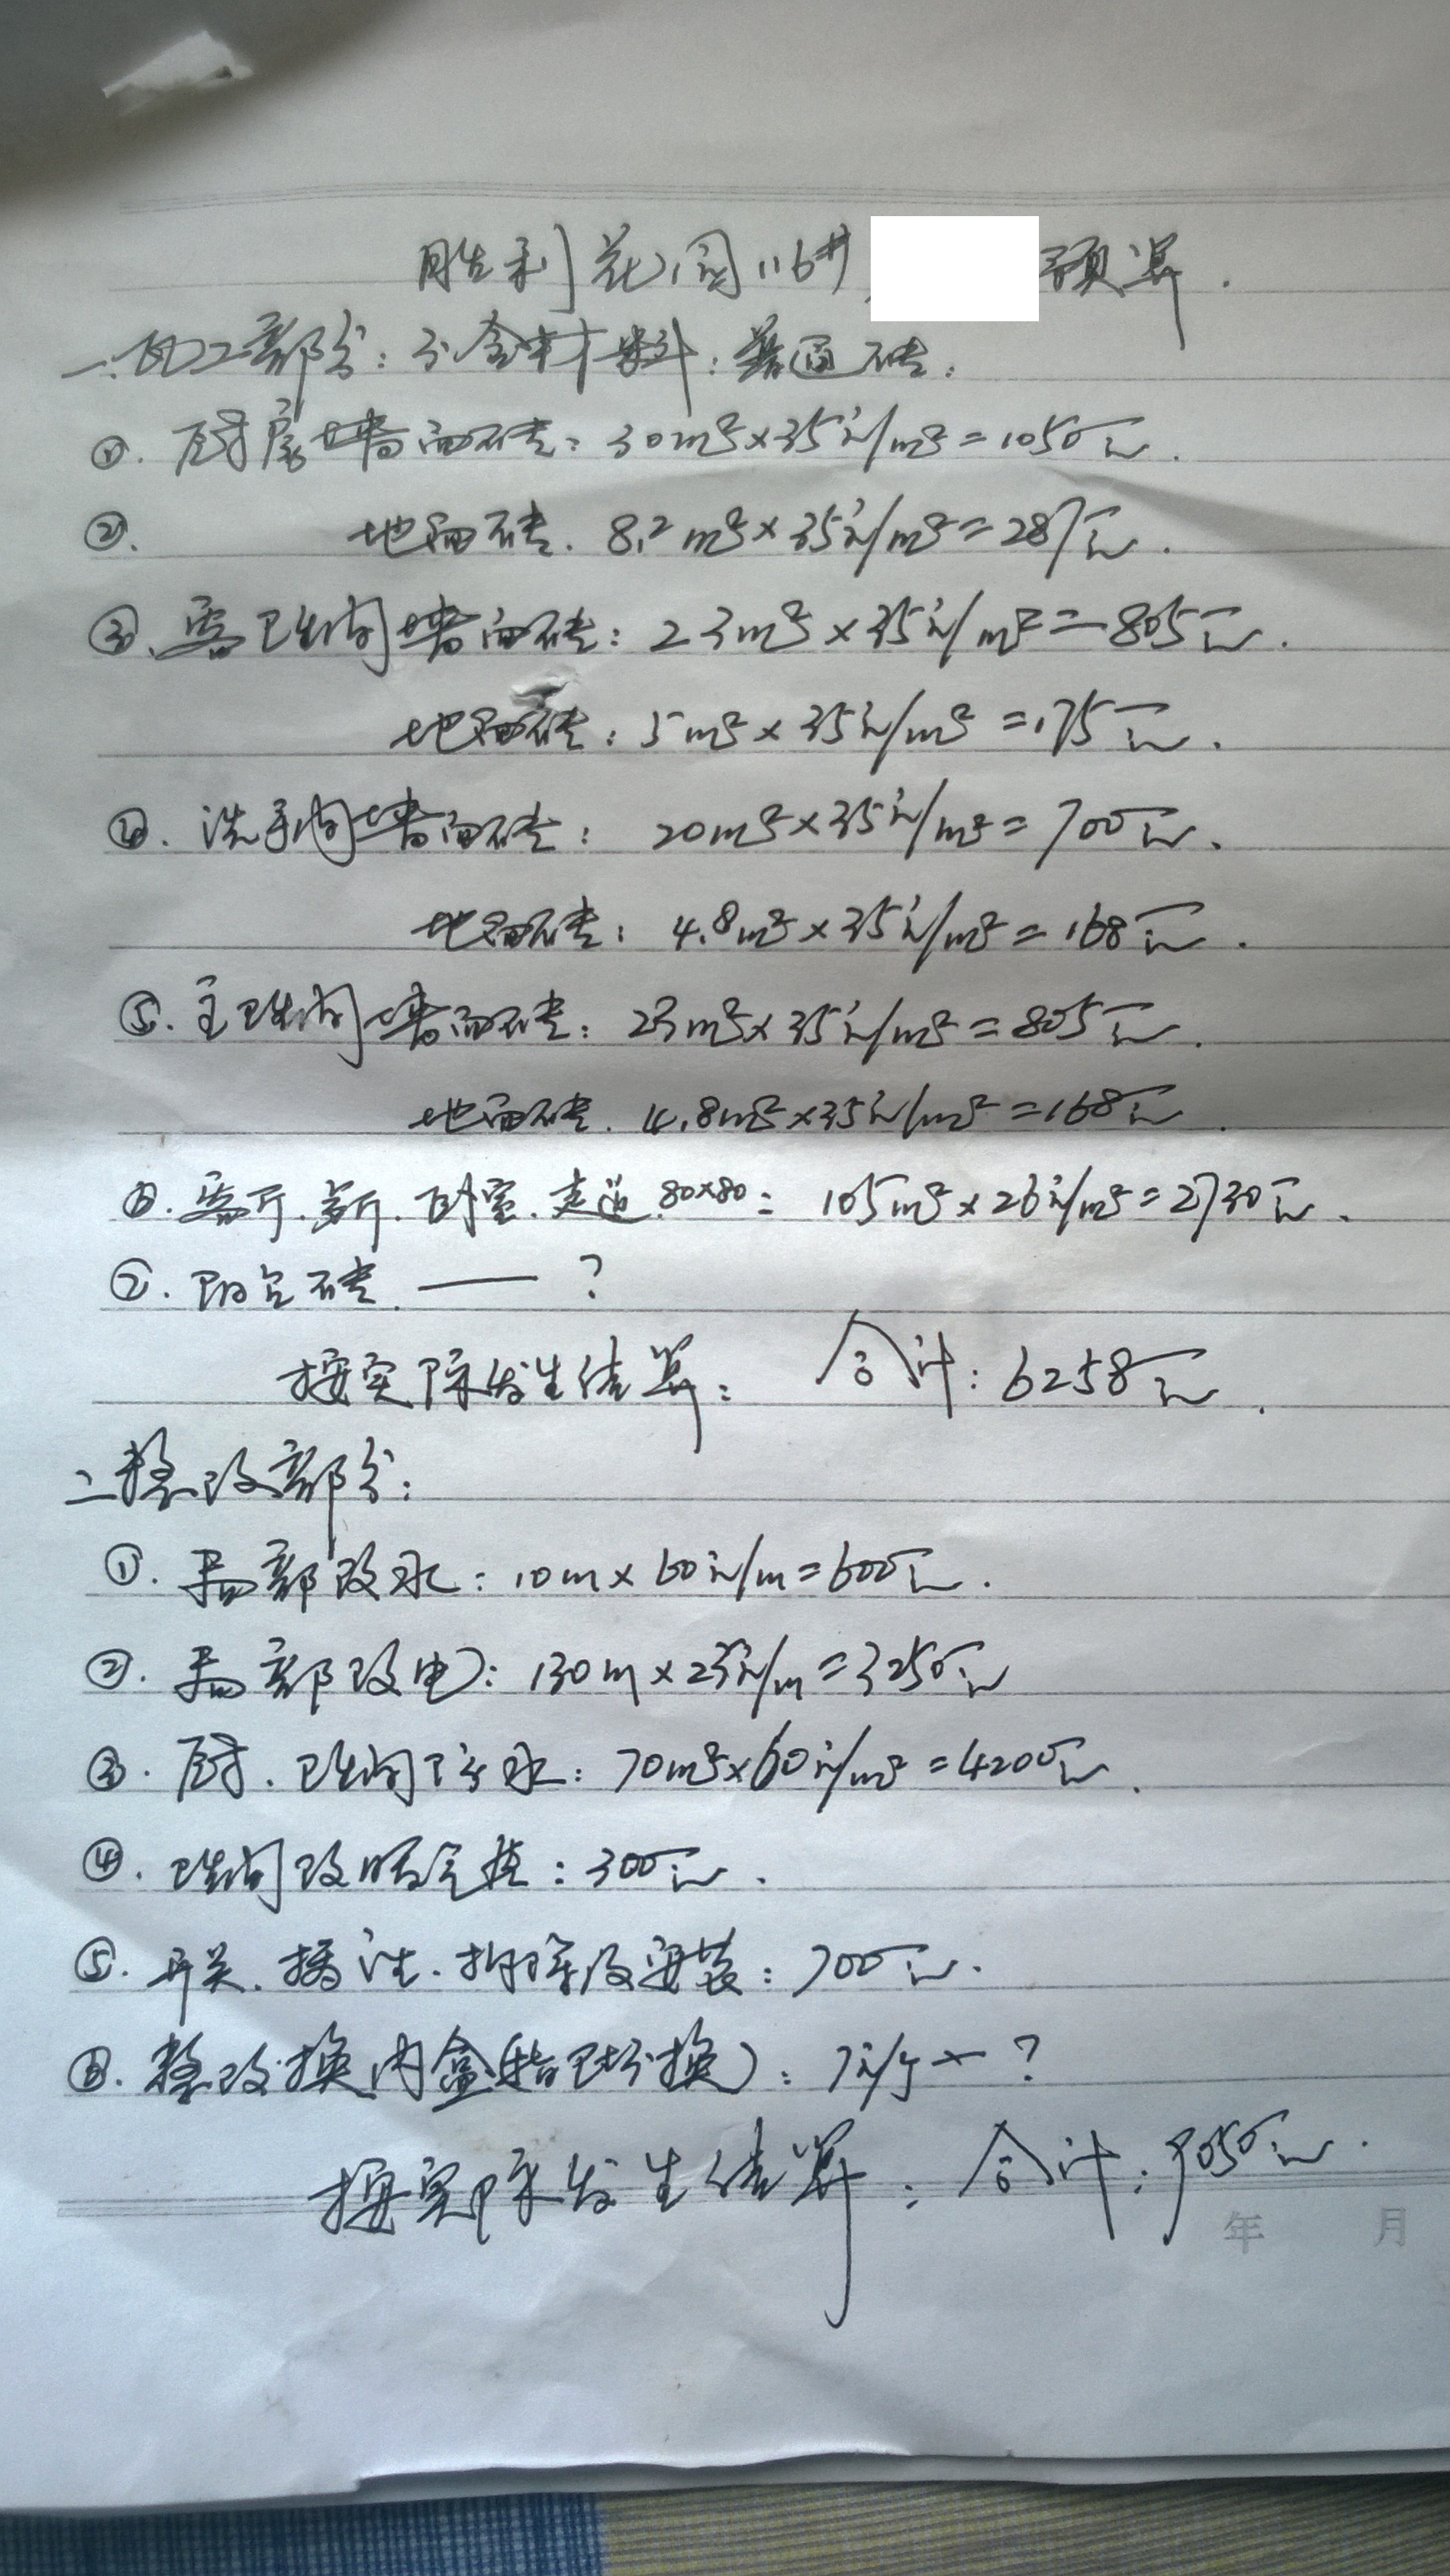 胜利花园116# 预算.
一.瓦工部分:不含材料:普通砖:
①.厨房墙面砖:30m²×35元/m²=1050元.
②. 地面砖.8.2m²×35元/m²=287元.
③.客卫生间墙面砖:23m²×35元/m²=805元.
地面砖:5m²×35元/m²=175元.
④.洗手间墙面砖: 20m²×35元/m²=700元.
地面砖:4.8m²×35元/m²=168元.
⑤.主卫生间墙面砖:23m²×35元/m²=805元.
地面砖.4.8m²×35元/m²=168元.
⑥.客厅.餐厅.卧室.走道.80×80: 105m²×26元/m²=2730元.
⑦.阳台砖.——?
按实际发生结算: 合计:6258元.
二.整改部分:
①.局部改水:10m×60元/m=600元.
②.局部改电:130m×25元/m=3250元
③.厨.卫生间防水:70m²×60元/m²=4200元.
④.卫生间改暖气接:300元.
⑤.开关.插座.拆除及安装:700元.
⑥.整改换内盒( 换):7元/个—?
按实际发生结算:合计:9050元.
年 月